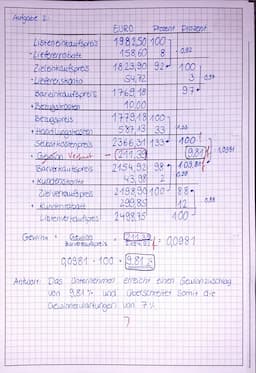 Aufgabe 2:
EURO Prozent Prozent
Listeneinkaufspreis 1982,50 100
- Lieferrabatt 158,60 8 0,92
Zieleinkaufspreis 1823,90 92 100
- Liefererskonto 54,72 3 0,97
Bareinkaufspreis 1769,18 97
+ Bezugskosten 10,00
Bezugspreis 1779,18 100
+ Handlungskosten 587,13 33 1,33
Selbstkostenpreis 2366,31 133 100
- Gewinn Verlust - 211,39 9,81
Barverkaufspreis 2154,92 98 109,81
+ Kundenskonto 43,98 2 0,98
Zielverkaufspreis 2198,90 100 88
+ Kundenrabatt 299,85 12 0,88
Listenverkaufspreis 2498,75 100
Gewinn = Gewinn 211,39 = 0,0981
Barverkaufspreis 2154,92
0,0981 · 100 = 9,81 %
Antwort: Das Unternehmen erreicht einen Gewinnzuschlag
von 9,81 % und überschreitet somit die
Gewinnerwartungen von 7 %